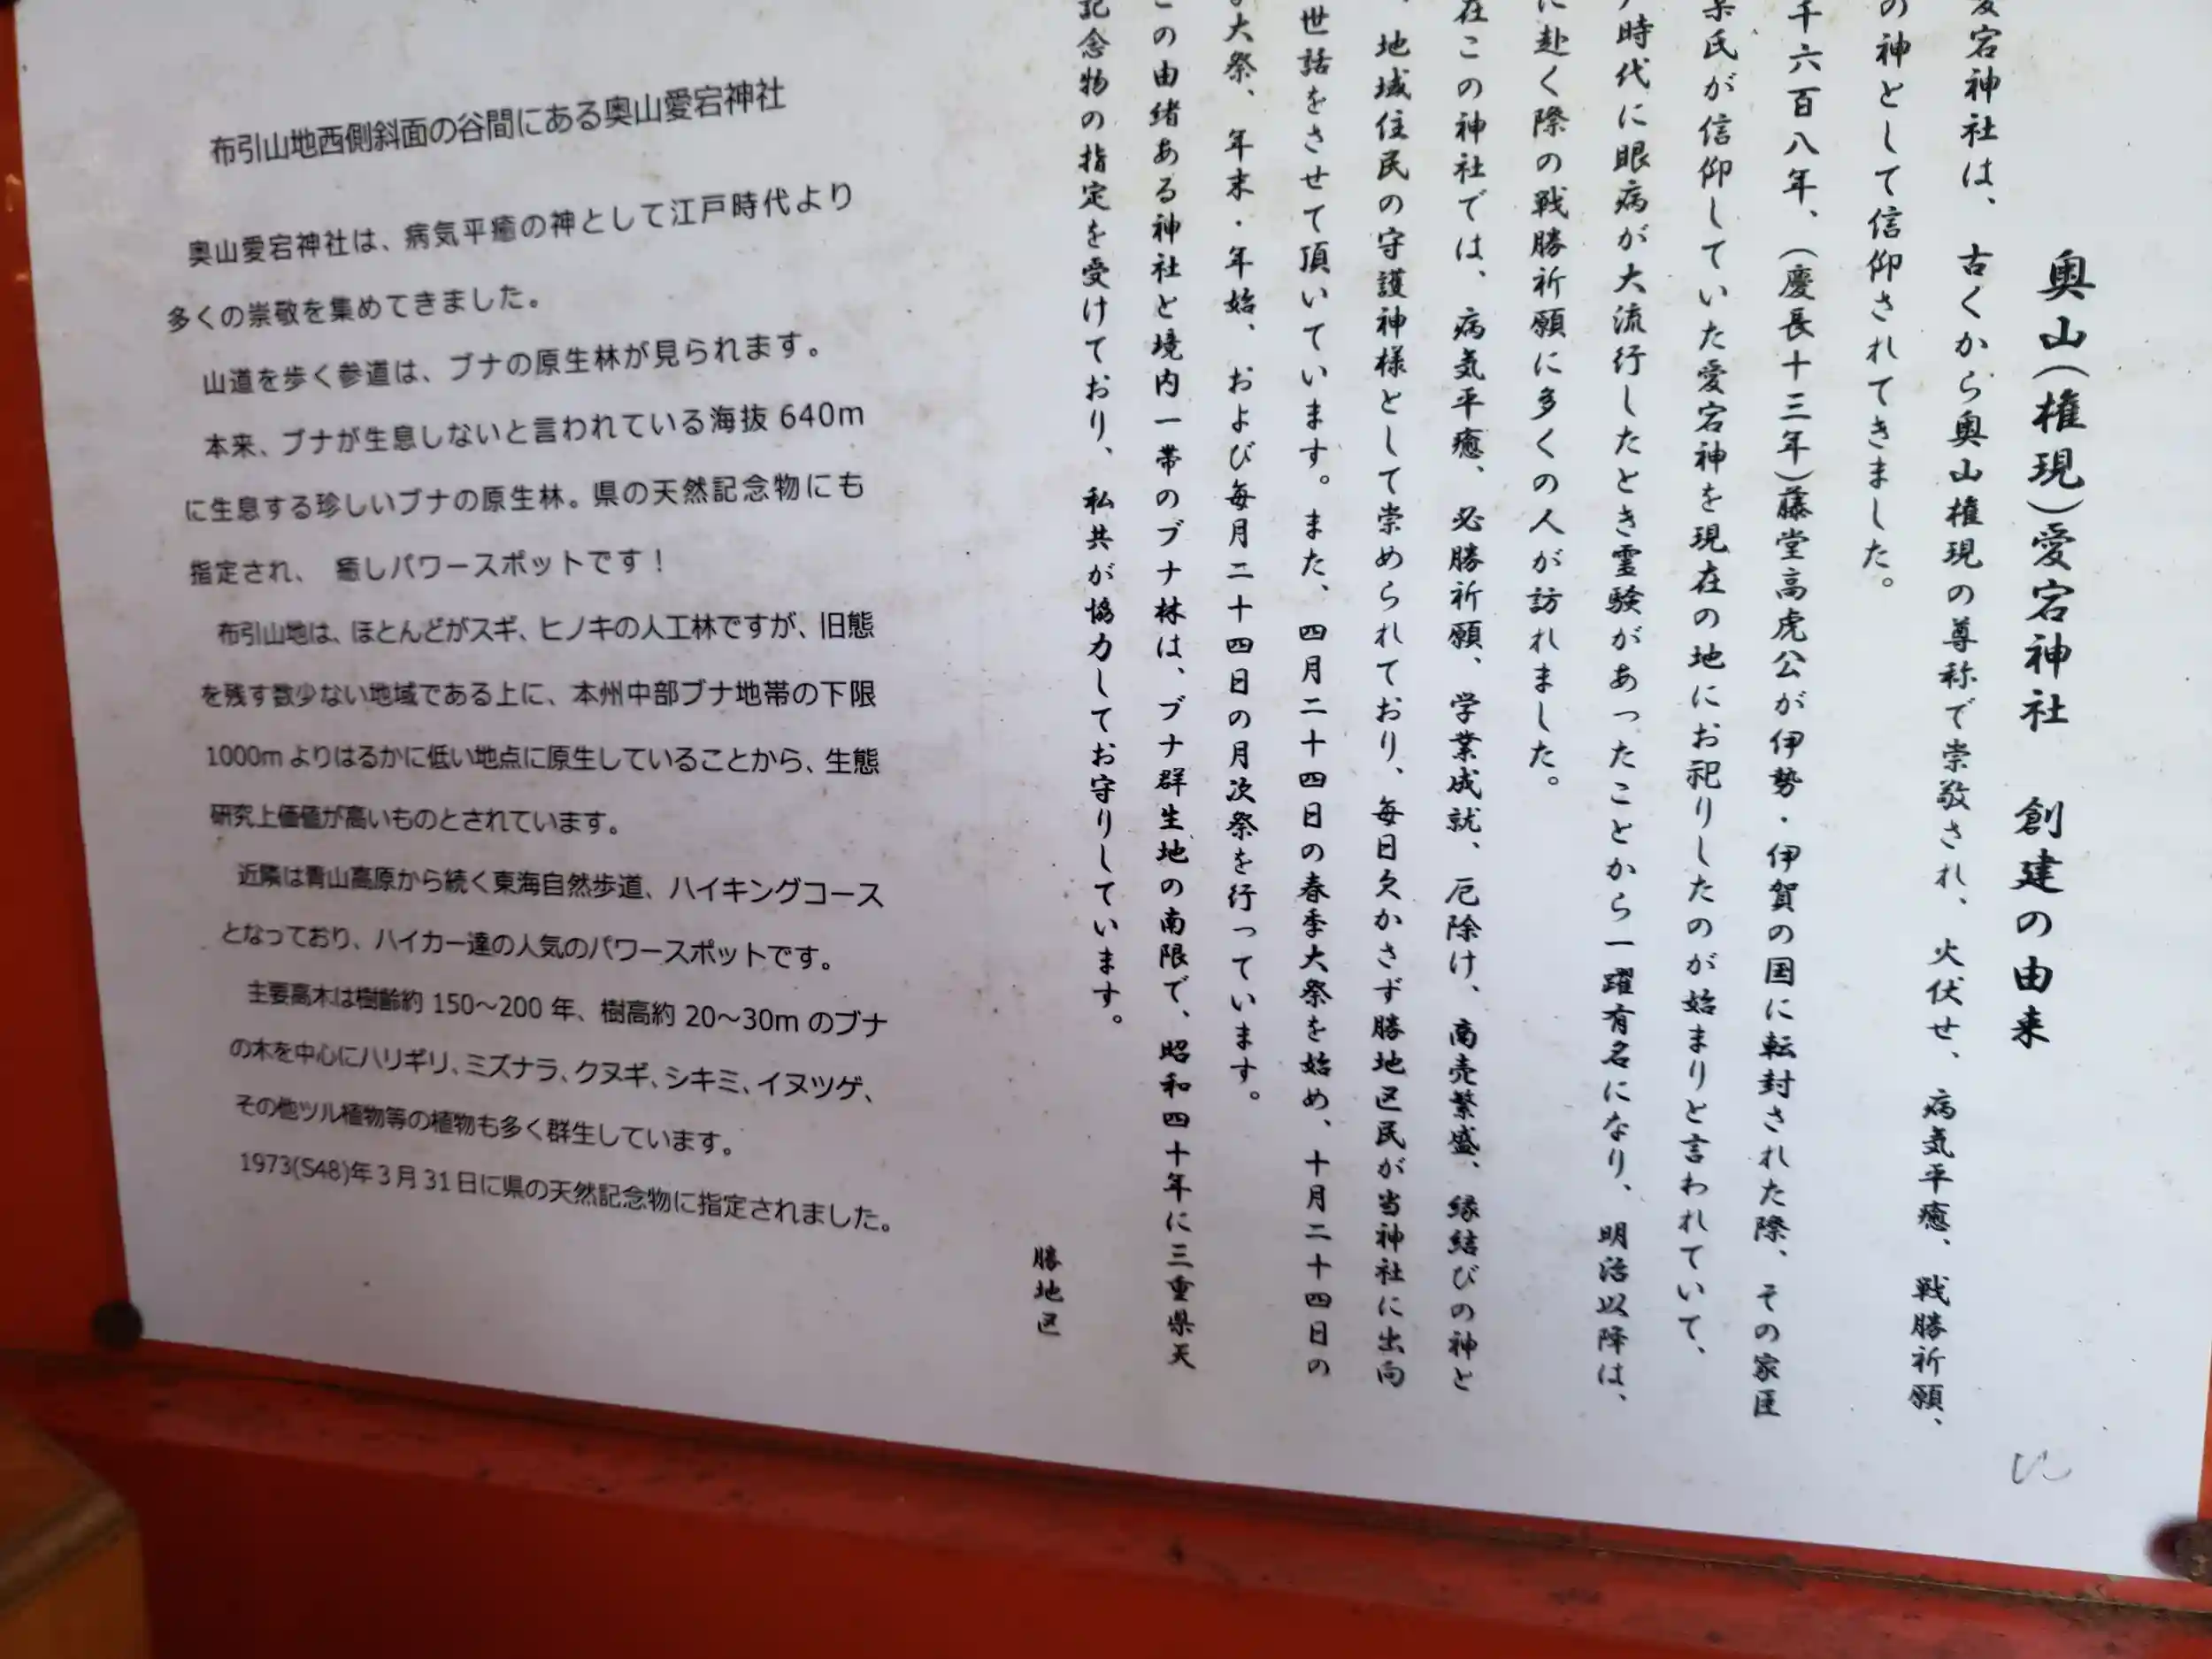 奥山(権現)愛宕神社 創建の由来
愛宕神社は、古くから奥山権現の尊称で崇敬され、火伏せ、病気平癒、戦勝祈願、
の神として信仰されてきました。
千六百八年、(慶長十三年)藤堂高虎公が伊勢・伊賀の国に転封された際、その家臣
氏が信仰していた愛宕神を現在の地にお祀りしたのが始まりと言われていて、
時代に眼病が大流行したとき霊験があったことから一躍有名になり、明治以降は、
に赴く際の戦勝祈願に多くの人が訪れました。
在この神社では、病気平癒、必勝祈願、学業成就、厄除け、商売繁盛、縁結びの神と
、地域住民の守護神様として崇められており、毎日欠かさず勝地区民が当神社に出向
世話をさせて頂いています。また、四月二十四日の春季大祭を始め、十月二十四日の
大祭、年末・年始、および毎月二十四日の月次祭を行っています。
この由緒ある神社と境内一帯のブナ林は、ブナ群生地の南限で、昭和四十年に三重県天
記念物の指定を受けており、私共が協力してお守りしています。
勝地区
布引山地西側斜面の谷間にある奥山愛宕神社
奥山愛宕神社は、病気平癒の神として江戸時代より
多くの崇敬を集めてきました。
山道を歩く参道は、ブナの原生林が見られます。
本来、ブナが生息しないと言われている海抜 640m
に生息する珍しいブナの原生林。県の天然記念物にも
指定され、 癒しパワースポットです！
布引山地は、ほとんどがスギ、ヒノキの人工林ですが、旧態
を残す数少ない地域である上に、本州中部ブナ地帯の下限
1000m よりはるかに低い地点に原生していることから、生態
研究上価値が高いものとされています。
近隣は青山高原から続く東海自然歩道、ハイキングコース
となっており、ハイカー達の人気のパワースポットです。
主要高木は樹齢約 150～200 年、樹高約 20～30m のブナ
の木を中心にハリギリ、ミズナラ、クヌギ、シキミ、イヌツゲ、
その他ツル植物等の植物も多く群生しています。
1973(S48)年3月31日に県の天然記念物に指定されました。